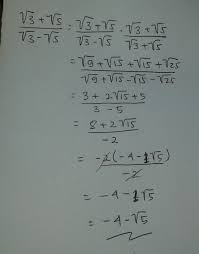 √3 + √5 / √3 - √5 = √3 + √5 / √3 - √5 . √3 + √5 / √3 + √5
= √9 + √15 + √15 + √25 / √9 + √15 - √15 - √25
= 3 + 2√15 + 5 / 3 - 5
= 8 + 2√15 / -2
= -2(-4 - 1√5) / -2
= -4 - 1√5
= -4 - √5